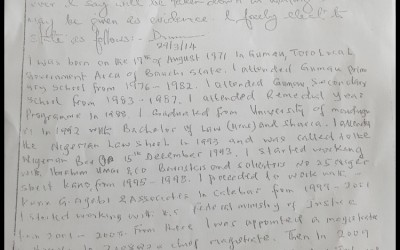 ever I say will be taken down in writing
may be given as evidence. I freely elect to
state as follows:-
29/3/14
I was born on the 17th of August 1971 in Gumau, Toro Local
Government Area of Bauchi State. I attended Gumau Prim
ary School from 1976 - 1982. I attended Gumau Secondary
School from 1983 - 1987. I attended Remedial Years
Programme in 1988. I graduated from University of maidugu
ri in 1992 with Bachelor of Law (Hons) and Sharia. I attended
the Nigerian Law School in 1993 and was called to the
Nigerian Bar on 15th December 1993. I started working
with Ibrahim & Co Barristers and solicitors No 25
street Kano from 1995 - 1998. I proceeded to work with
& Associates in Calabar from 1999 - 2001
I started working with Federal ministry of Justice
from 2001 - 2005. From there I was appointed a magistrate
chief magistrate. Then in 2009